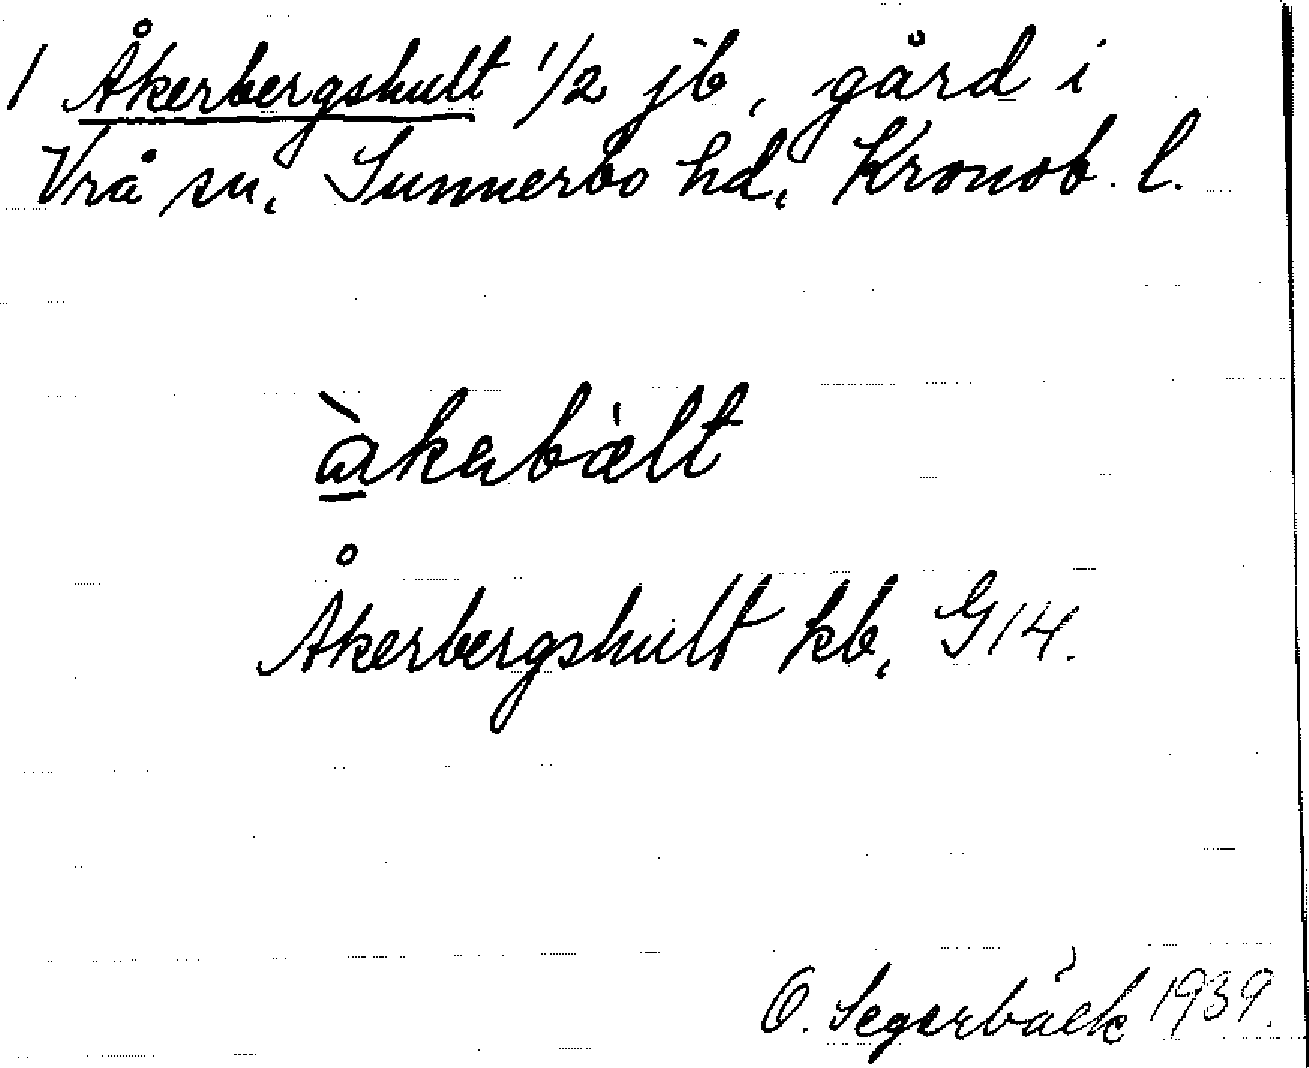 1 Åkerbergshult 1/2 jb, gård i
Vrå sn, Sunnerbo hd, Kronob. l.
Åkerbergshult kb, G14.
O. Segerbäck 1939.